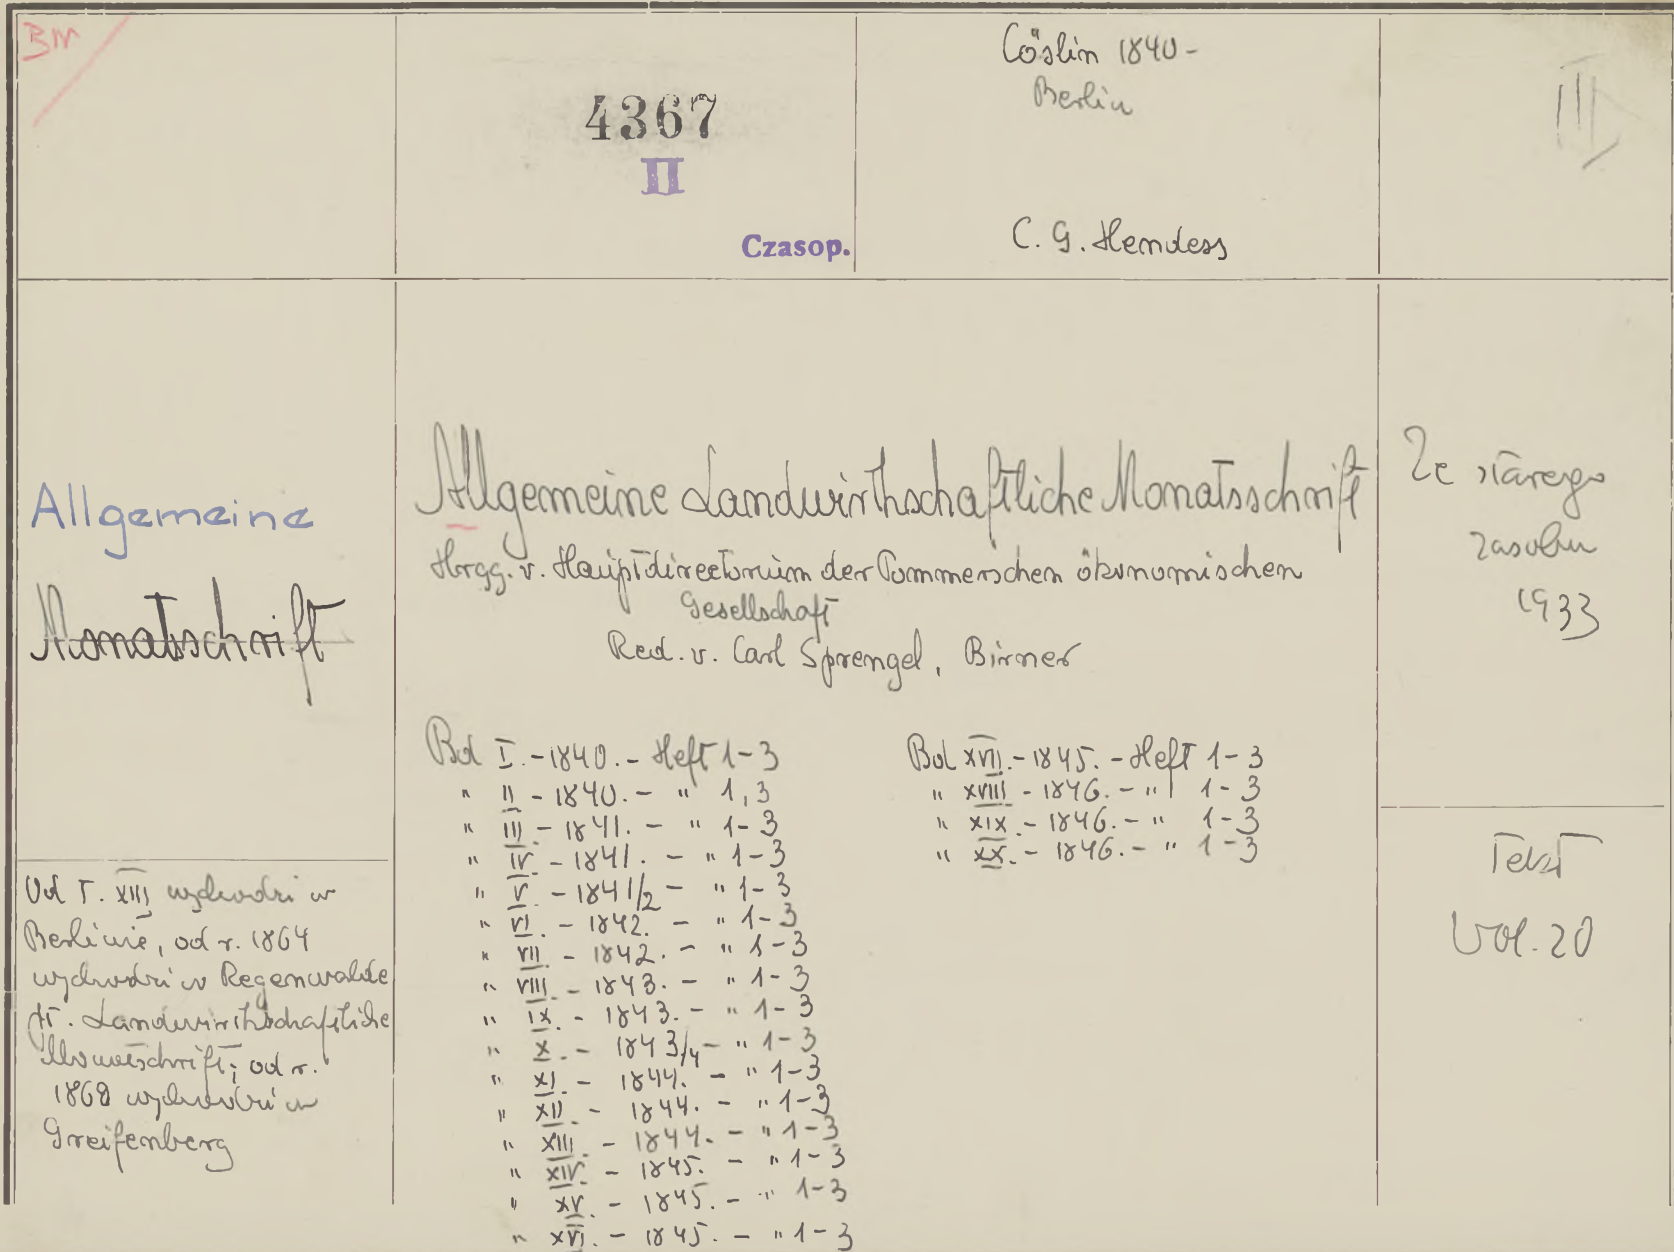 BM
4367
II
Czasop.
Cöslin 1840 -
Berlin
C. G. Hendess
III
Allgemeine
Monatsschrift
Allgemeine Landwirthschaftliche Monatsschrift
Hrgg. v. Hauptdirectorium der Pommerschen ökonomischen
Gesellschaft
Red. v. Carl Sprengel, Birner
Bd I. - 1840. - Heft 1-3
" II - 1840. - " 1,3
" III - 1841. - " 1-3
" IV - 1841. - " 1-3
" V. - 1841/2 - " 1-3
" VI. - 1842. - " 1-3
" VII - 1842. - " 1-3
" VIII - 1843. - " 1-3
" IX. - 1843. - " 1-3
" X. - 1843/4 - " 1-3
" XI. - 1844. - " 1-3
" XII - 1844. - " 1-3
" XIII - 1844. - " 1-3
" XIV. - 1845. - " 1-3
" XV. - 1845. - " 1-3
" XVI. - 1845. - " 1-3
Bd XVII. - 1845. - Heft 1-3
" XVIII - 1846. - " 1-3
" XIX. - 1846. - " 1-3
" XX. - 1846. - " 1-3
Ze starego
zasobu
1933
Tekst
Vol. 20
Od T. XIII wychodzi w
Berlinie, od r. 1864
wychodzi w Regenwalde
pt. Landwirthschaftliche
Monatschrift; od r.
1868 wychodzi w
Greifenberg